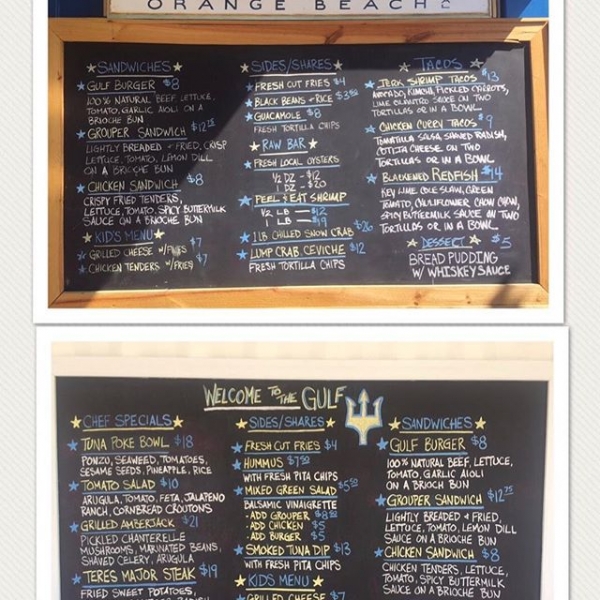 ORANGE BEACH
SANDWICHES
GULF BURGER $8
100% NATURAL BEEF, LETTUCE,
TOMATO, GARLIC AIOLI ON A
BRIOCHE BUN
GROUPER SANDWICH $12.75
LIGHTLY BREADED + FRIED, CRISP
LETTUCE, TOMATO, LEMON DILL
ON A BRIOCHE BUN
CHICKEN SANDWICH $8
CRISPY FRIED TENDERS,
LETTUCE, TOMATO, SPICY BUTTERMILK
SAUCE ON A BRIOCHE BUN
KID'S MENU
GRILLED CHEESE W/FRIES $7
CHICKEN TENDERS W/FRIES $7
SIDES/SHARES
FRESH CUT FRIES $4
BLACK BEANS + RICE $3.50
GUACAMOLE $8
FRESH TORTILLA CHIPS
RAW BAR
FRESH LOCAL OYSTERS
1/2 DZ - $12
1 DZ - $20
PEEL & EAT SHRIMP
1/2 LB - $12
1 LB - $19
1 LB CHILLED SNOW CRAB $26
LUMP CRAB CEVICHE $12
FRESH TORTILLA CHIPS
TACOS
JERK SHRIMP TACOS $13
AVOCADO, KIMCHI, PICKLED CARROTS,
LIME CILANTRO SAUCE ON TWO
TORTILLAS OR IN A BOWL
CHICKEN CURRY TACOS $9
TOMATILLA SALSA, SHAVED RADISH,
COTIJA CHEESE ON TWO
TORTILLAS OR IN A BOWL
BLACKENED REDFISH $14
KEY LIME COLE SLAW, GREEN
TOMATO, CAULIFLOWER CHOW CHOW,
SPICY BUTTERMILK SAUCE ON TWO
TORTILLAS OR IN A BOWL
DESSERT $5
BREAD PUDDING
W/ WHISKEY SAUCE
WELCOME TO THE GULF
CHEF SPECIALS
TUNA POKE BOWL $18
PONZU, SEAWEED, TOMATOES,
SESAME SEEDS, PINEAPPLE, RICE
TOMATO SALAD $10
ARUGULA, TOMATO, FETA, JALAPENO
RANCH, CORNBREAD CROUTONS
GRILLED AMBERJACK $21
PICKLED CHANTERELLE
MUSHROOMS, MARINATED BEANS,
SHAVED CELERY, ARUGULA
TERES MAJOR STEAK $19
FRIED SWEET POTATOES,
SIDES/SHARES
FRESH CUT FRIES $4
HUMMUS $7.50
WITH FRESH PITA CHIPS
MIXED GREEN SALAD $5.50
BALSAMIC VINAIGRETTE
-ADD GROUPER $8.50
-ADD CHICKEN $5
-ADD BURGER $5
SMOKED TUNA DIP $13
WITH FRESH PITA CHIPS
KIDS MENU
GRILLED CHEESE $7
SANDWICHES
GULF BURGER $8
100% NATURAL BEEF, LETTUCE,
TOMATO, GARLIC AIOLI
ON A BRIOCH BUN
GROUPER SANDWICH $12.75
LIGHTLY BREADED + FRIED,
LETTUCE, TOMATO, LEMON DILL
SAUCE ON A BRIOCH BUN
CHICKEN SANDWICH $8
CHICKEN TENDERS, LETTUCE,
TOMATO, SPICY BUTTERMILK
SAUCE ON A BRIOCH BUN